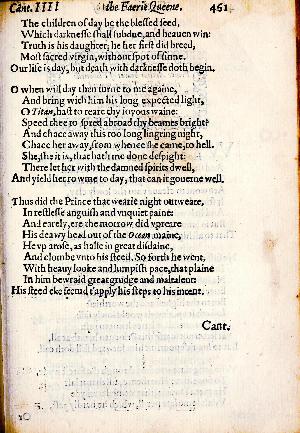 Cant. IIII the Faerie Queene. 461
The children of day be the blessed seed,
Which darknesse shall subdue, and heauen win:
Truth is his daughter; he her first did breed,
Most sacred virgin, without spot of sinne.
Our life is day, but death with darknesse doth begin.
O when will day then turne to me againe,
And bring with him his long expected light,
O Titan, hast to reare thy ioyous waine:
Speed thee to spred abroad thy beames bright?
And chace away this too long lingring night,
Chace her away, from whence she came, to hell.
She, she it is, that hath me done despight:
There let her with the damned spirits dwell,
And yeild her rowme to day, that can it gouerne well.
Thus did the Prince that wearie night outweare,
In restlesse anguish and vnquiet paine:
And earely, ere the morrow did vpreare
His deawy head out of the Ocean maine,
He vp arose, as halfe in great disdaine,
And clombe vnto his steed. So forth he went,
With heauy looke and lumpish pace, that plaine
In him bewraid great grudge and maltalent:
His steed eke seem'd t'apply his steps to his intent.
Cant.